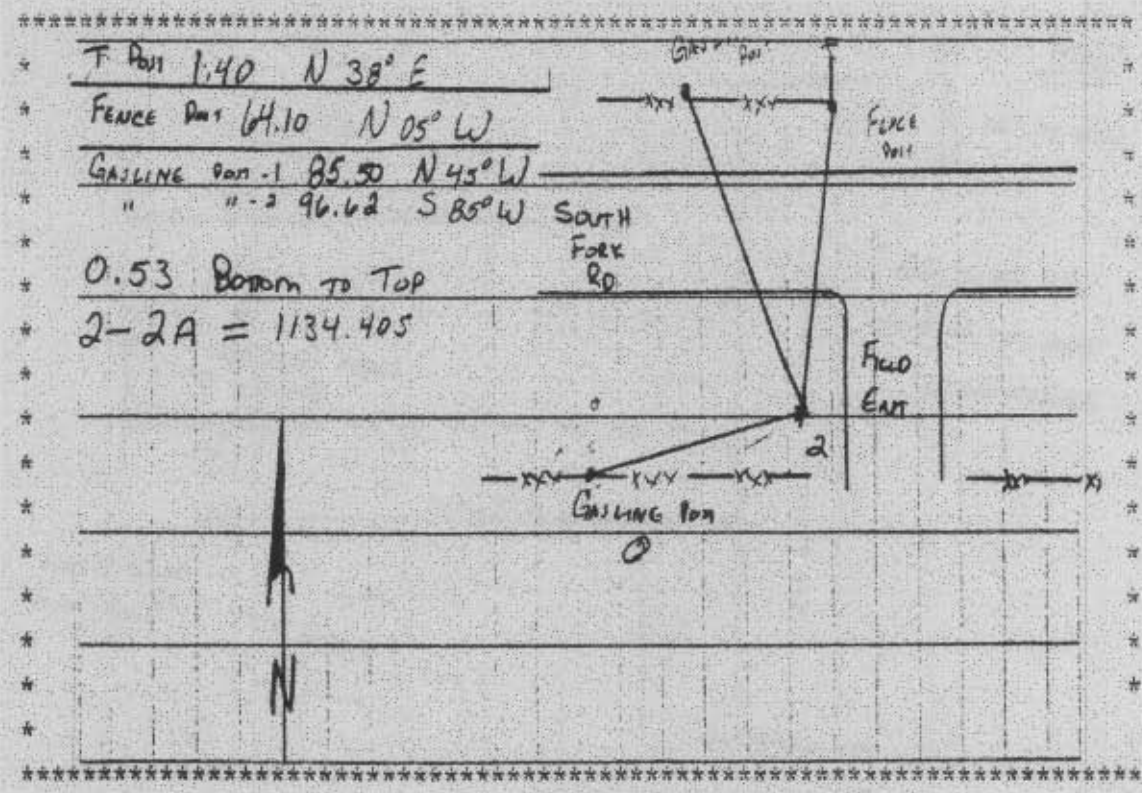 T. Post 1.40 N 38° E
FENCE POST 64.10 N 05° W
GASLINE POST -1 85.50 N 45° W
" " -2 96.62 S 85° W
0.53 BOTTOM TO TOP
2-2A = 1134.405
POST
FENCE
POST
SOUTH
FORK
RD
FIELD
ENT
2
GASLINE POST
N